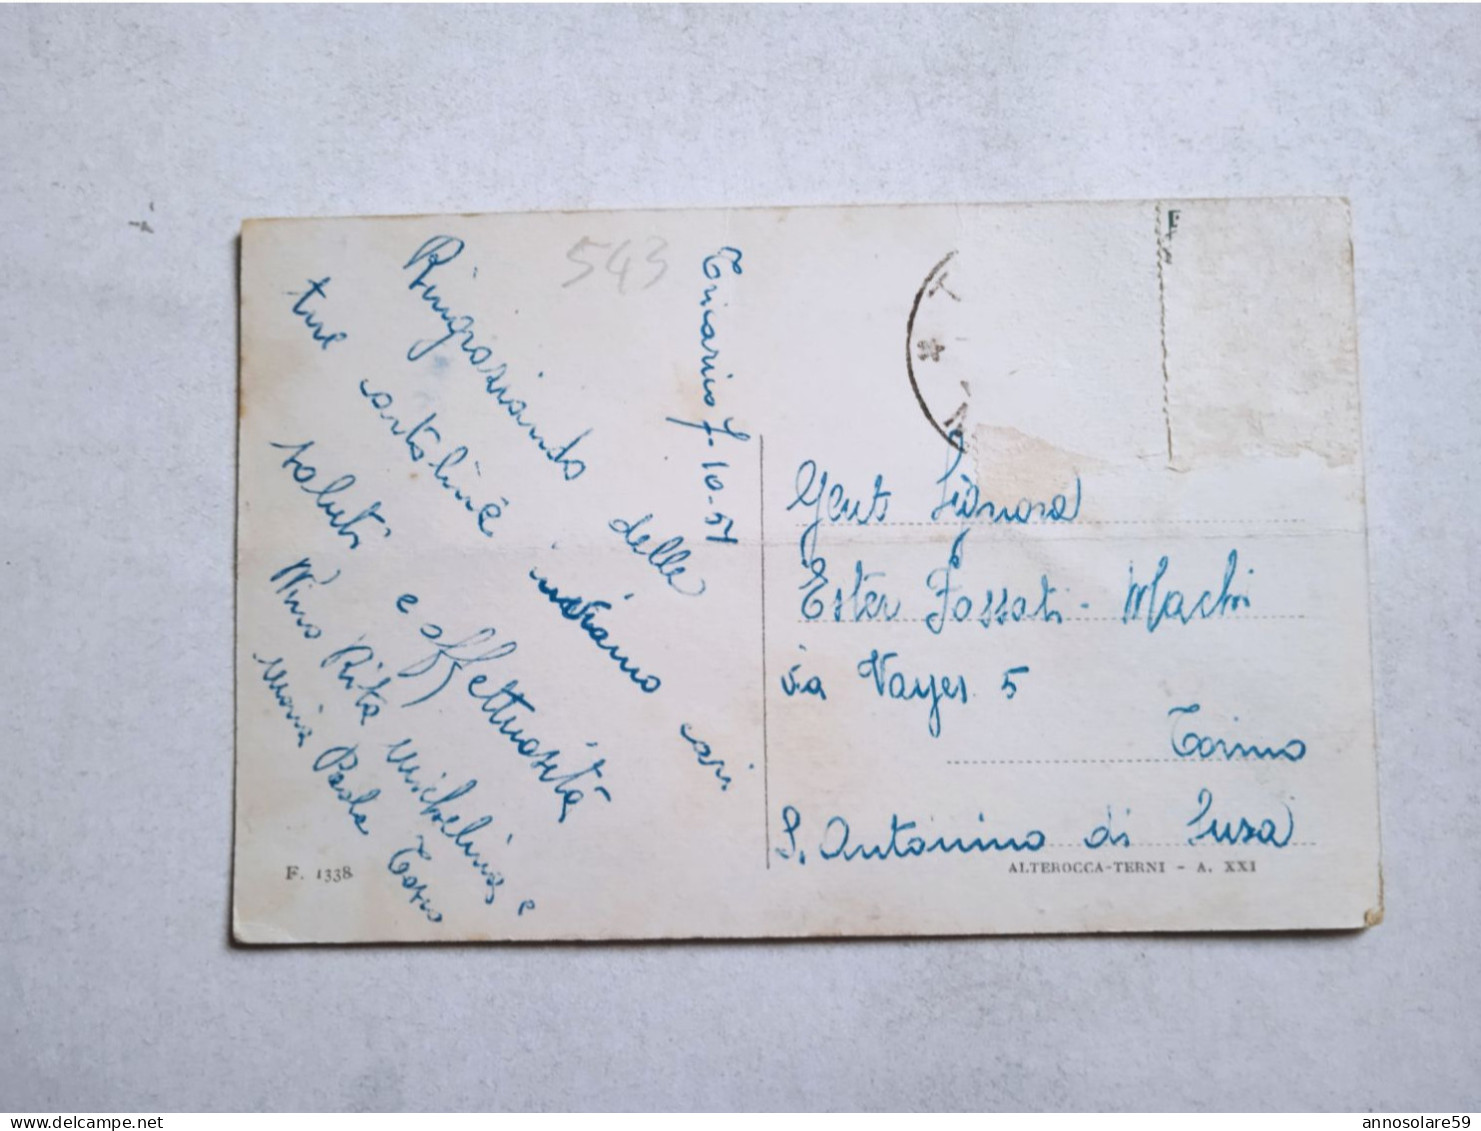 543
Tricarico 7-10-57
Ringraziando della
tue cartoline inviamo cari
saluti e affettuosità
Nino Rita Michelina e
Maria Paola
Gent Signora
Ester Fossati - Machi
via Vayes 5
Torino
S. Antonino di Susa
F. 1338
ALTEROCCA-TERNI - A. XXI
delcampe.net
annosolare59